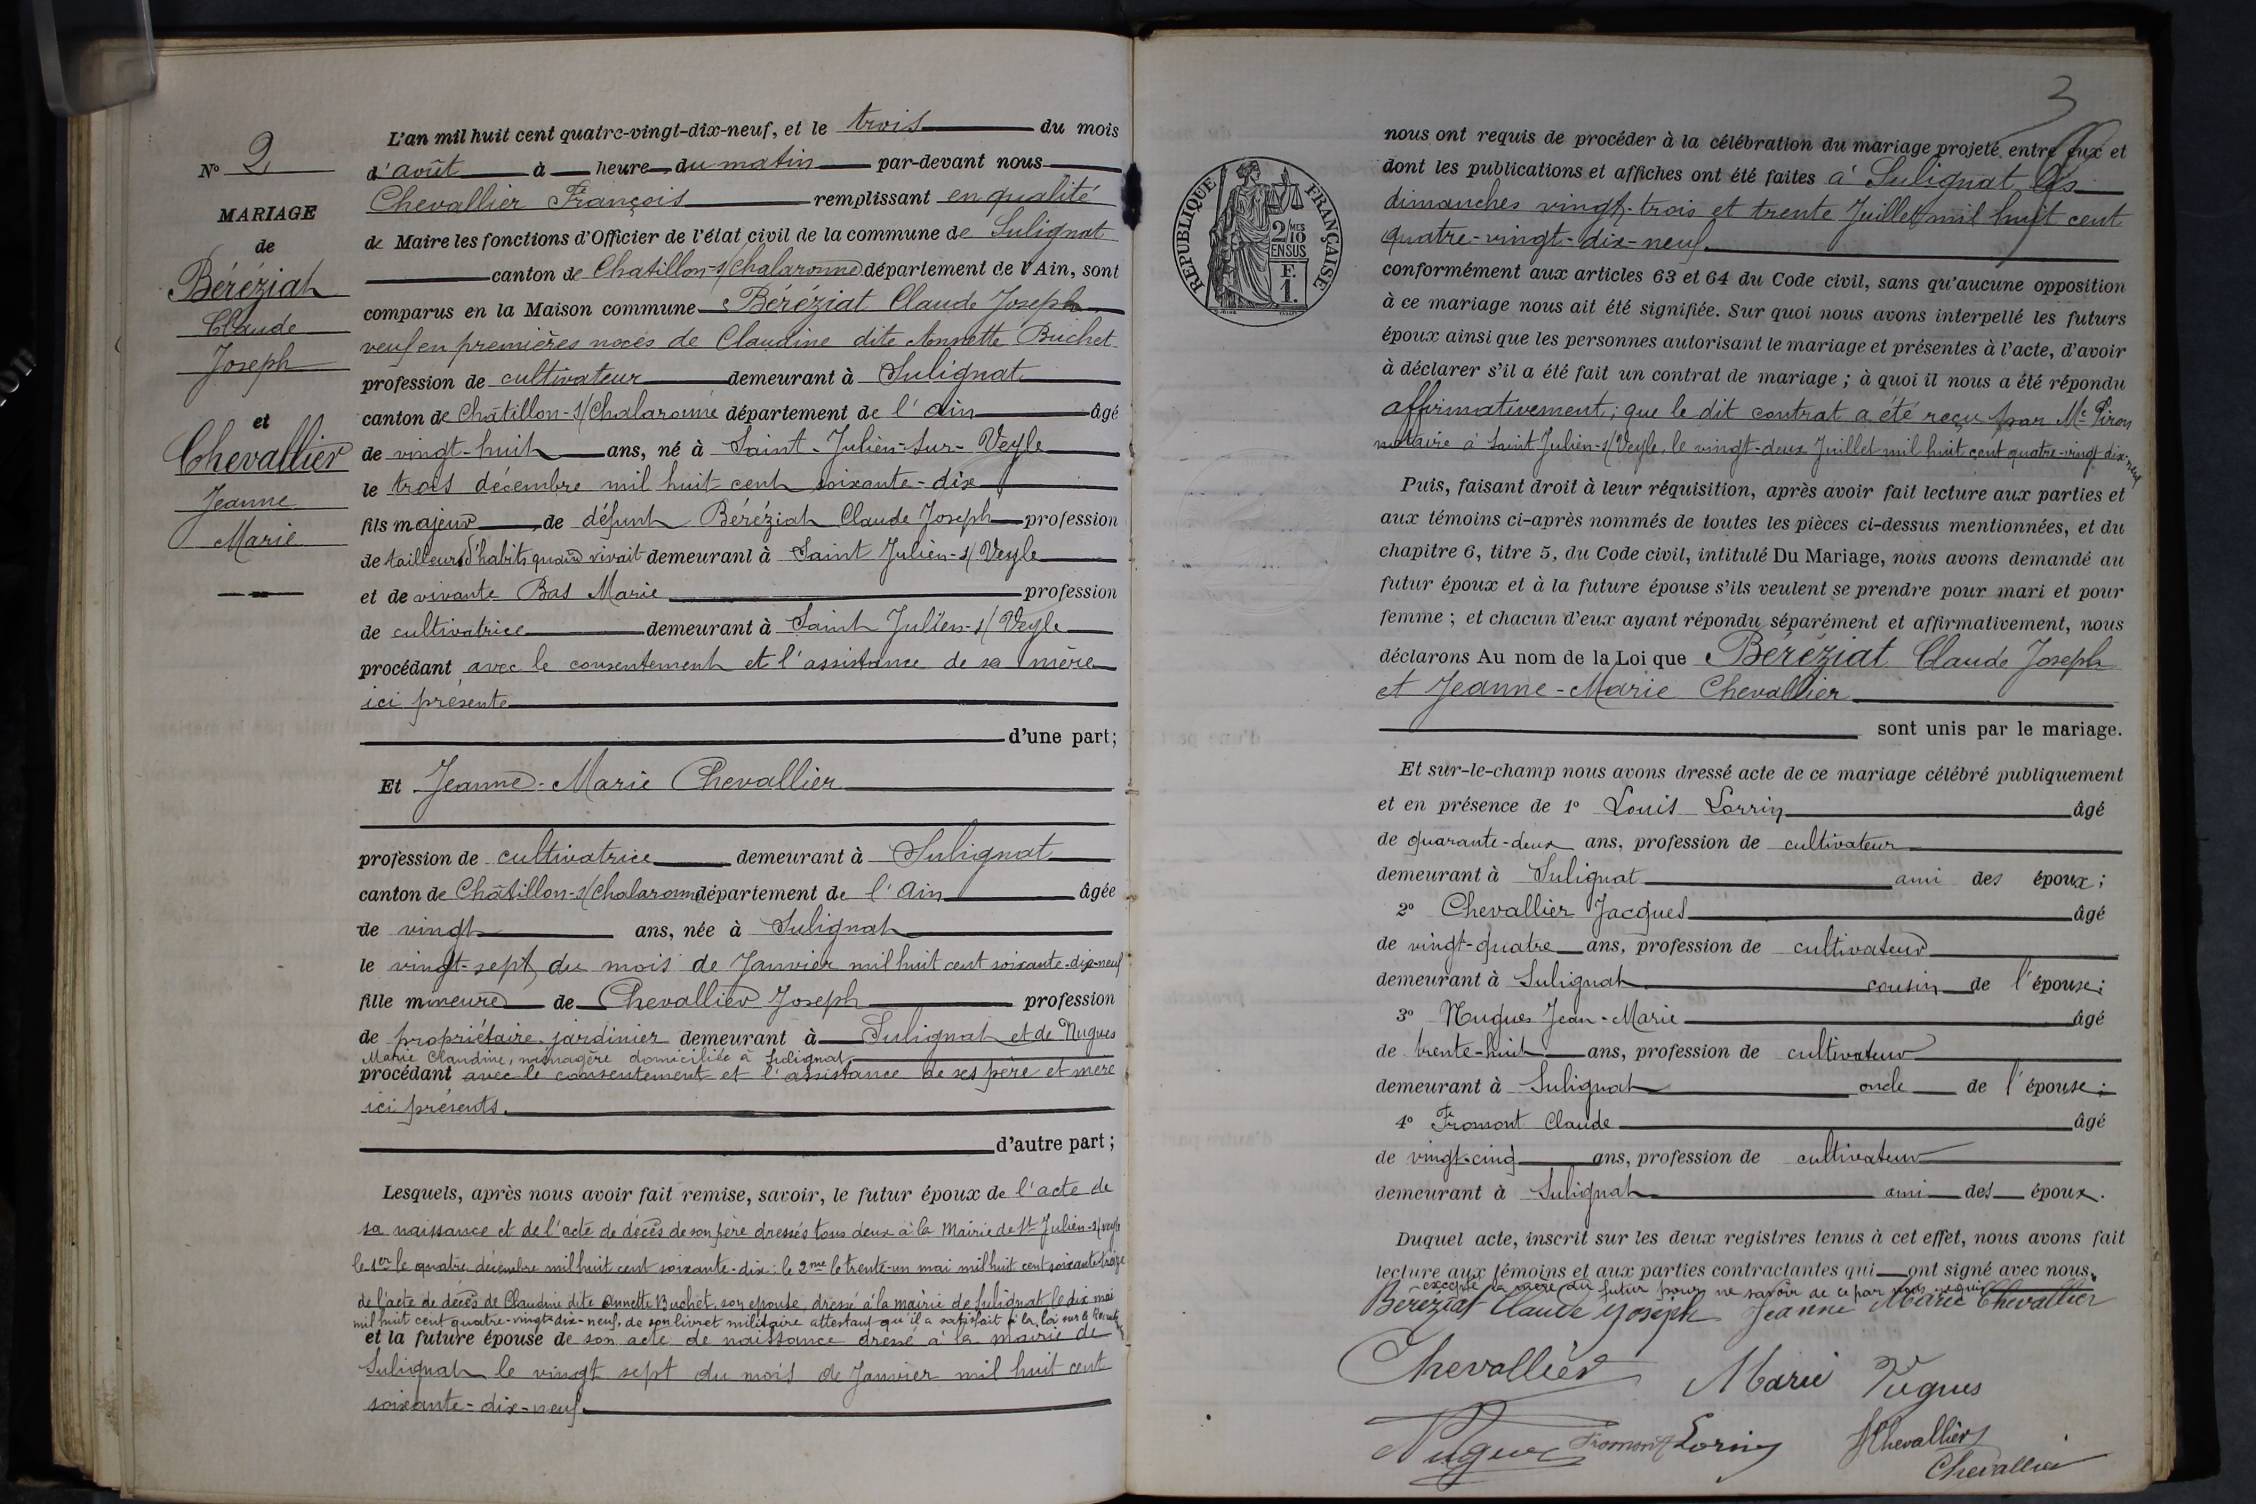 No 2
MARIAGE
de
Béréziat
Claude
Joseph
et
Chevallier
Jeanne
Marie
L'an mil huit cent quatre-vingt-dix-neuf, et le trois du mois
d'août à heure du matin par-devant nous
Chevallier François remplissant en qualité
de Maire les fonctions d'Officier de l'état civil de la commune de Sulignat
canton de Chatillon-s/Chalaronne département de l'Ain, sont
comparus en la Maison commune Béréziat Claude Joseph
veuf en premières noces de Claudine dite Annette Buchet
profession de cultivateur demeurant à Sulignat
canton de Châtillon-s/Chalaronne département de l'ain âgé
de vingt-huit ans, né à Saint-Julien-sur-Veyle
le trois décembre mil huit cent soixante-dix
fils majeur de défunt Béréziat Claude Joseph profession
de tailleurs d'habits quand vivait demeurant à Saint Julien-s/Veyle
et de vivante Bas Marie profession
de cultivatrice demeurant à Saint Julien-s/Veyle
procédant avec le consentement et l'assistance de sa mère
ici présente
d'une part;
Et Jeanne-Marie Chevallier
profession de cultivatrice demeurant à Sulignat
canton de Châtillon-s/Chalaronne département de l'ain âgée
de vingt ans, née à Sulignat
le vingt-sept du mois de Janvier mil huit cent soixante-dix-neuf
fille mineure de Chevallier Joseph profession
de propriétaire jardinier demeurant à Sulignat et de Nugues
Marie Claudine, ménagère domiciliée à Sulignat
procédant avec le consentement et l'assistance de ses père et mère
ici présents.
d'autre part;
Lesquels, après nous avoir fait remise, savoir, le futur époux de l'acte de
sa naissance et de l'acte de décès de son père dressés tous deux à la Mairie de St Julien-s/Veyle
le 1er le quatre décembre mil huit cent soixante-dix: le 2me le trente-un mai mil huit cent soixante-treize
de l'acte de décès de Claudine dite Annette Buchet, son épouse, dressé à la mairie de Sulignat le dix mai
mil huit cent quatre-vingt-dix-neuf, de son livret militaire attestant qu'il a satisfait à la loi sur le
et la future épouse de son acte de naissance dressé à la mairie de
Sulignat le vingt sept du mois de Janvier mil huit cent
soixante-dix-neuf
3
RÉPUBLIQUE FRANÇAISE
2/10 MES
EN SUS
F.
1.
nous ont requis de procéder à la célébration du mariage projeté entre eux et
dont les publications et affiches ont été faites à Sulignat les
dimanches vingt-trois et trente Juillet mil huit cent
quatre-vingt-dix-neuf
conformément aux articles 63 et 64 du Code civil, sans qu'aucune opposition
à ce mariage nous ait été signifiée. Sur quoi nous avons interpellé les futurs
époux ainsi que les personnes autorisant le mariage et présentes à l'acte, d'avoir
à déclarer s'il a été fait un contrat de mariage; à quoi il nous a été répondu
affirmativement; que le dit contrat a été reçu par Me Piron
notaire à Saint Julien-s/Veyle, le vingt-deux Juillet mil huit cent quatre-vingt dix-neuf
Puis, faisant droit à leur réquisition, après avoir fait lecture aux parties et
aux témoins ci-après nommés de toutes les pièces ci-dessus mentionnées, et du
chapitre 6, titre 5, du Code civil, intitulé Du Mariage, nous avons demandé au
futur époux et à la future épouse s'ils veulent se prendre pour mari et pour
femme; et chacun d'eux ayant répondu séparément et affirmativement, nous
déclarons Au nom de la Loi que Béréziat Claude Joseph
et Jeanne-Marie Chevallier
sont unis par le mariage.
Et sur-le-champ nous avons dressé acte de ce mariage célébré publiquement
et en présence de 1o Louis Lorrin âgé
de quarante-deux ans, profession de cultivateur
demeurant à Sulignat ami des époux;
2o Chevallier Jacques âgé
de vingt-quatre ans, profession de cultivateur
demeurant à Sulignat cousin de l'épouse;
3o Nugues Jean-Marie âgé
de trente-huit ans, profession de cultivateur
demeurant à Sulignat oncle de l'épouse;
4o Fromont Claude âgé
de vingt-cinq ans, profession de cultivateur
demeurant à Sulignat ami des époux.
Duquel acte, inscrit sur les deux registres tenus à cet effet, nous avons fait
lecture aux témoins et aux parties contractantes qui ont signé avec nous,
excepté la mère du futur pour ne savoir de ce par nous requis
Béréziat Claude Joseph Jeanne Marie Chevallier
Chevallier Marie Nugues
Nugues Fromont Lorin J Chevallier
Chevallier